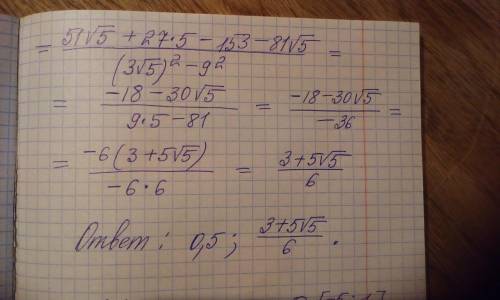 = (51√5 + 27·5 − 153 − 81√5) / ((3√5)² − 9²) =
= (−18 − 30√5) / (9·5 − 81) = (−18 − 30√5) / (−36) =
= (−6(3 + 5√5)) / (−6·6) = (3 + 5√5) / 6
Ответ: 0,5; (3 + 5√5) / 6.